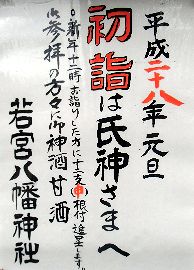 平成二十八年元旦
初詣は氏神さまへ
◎新年十二時お詣りした方に十二支申根付進呈します。
御参拝の方々に御神酒甘酒
若宮八幡神社